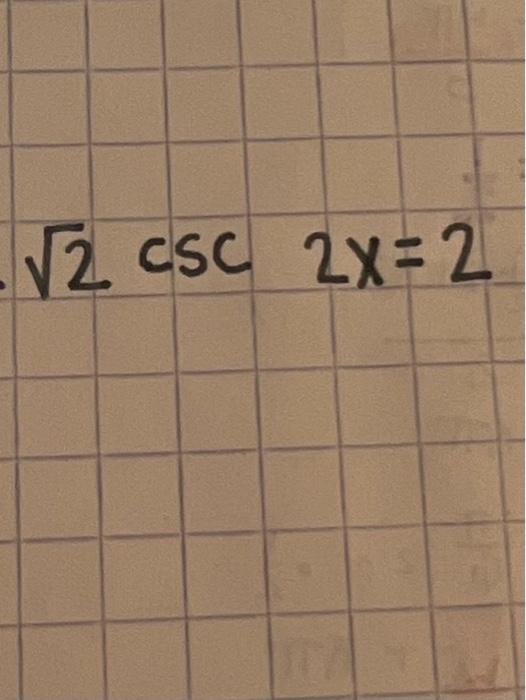 . √2 csc 2x = 2